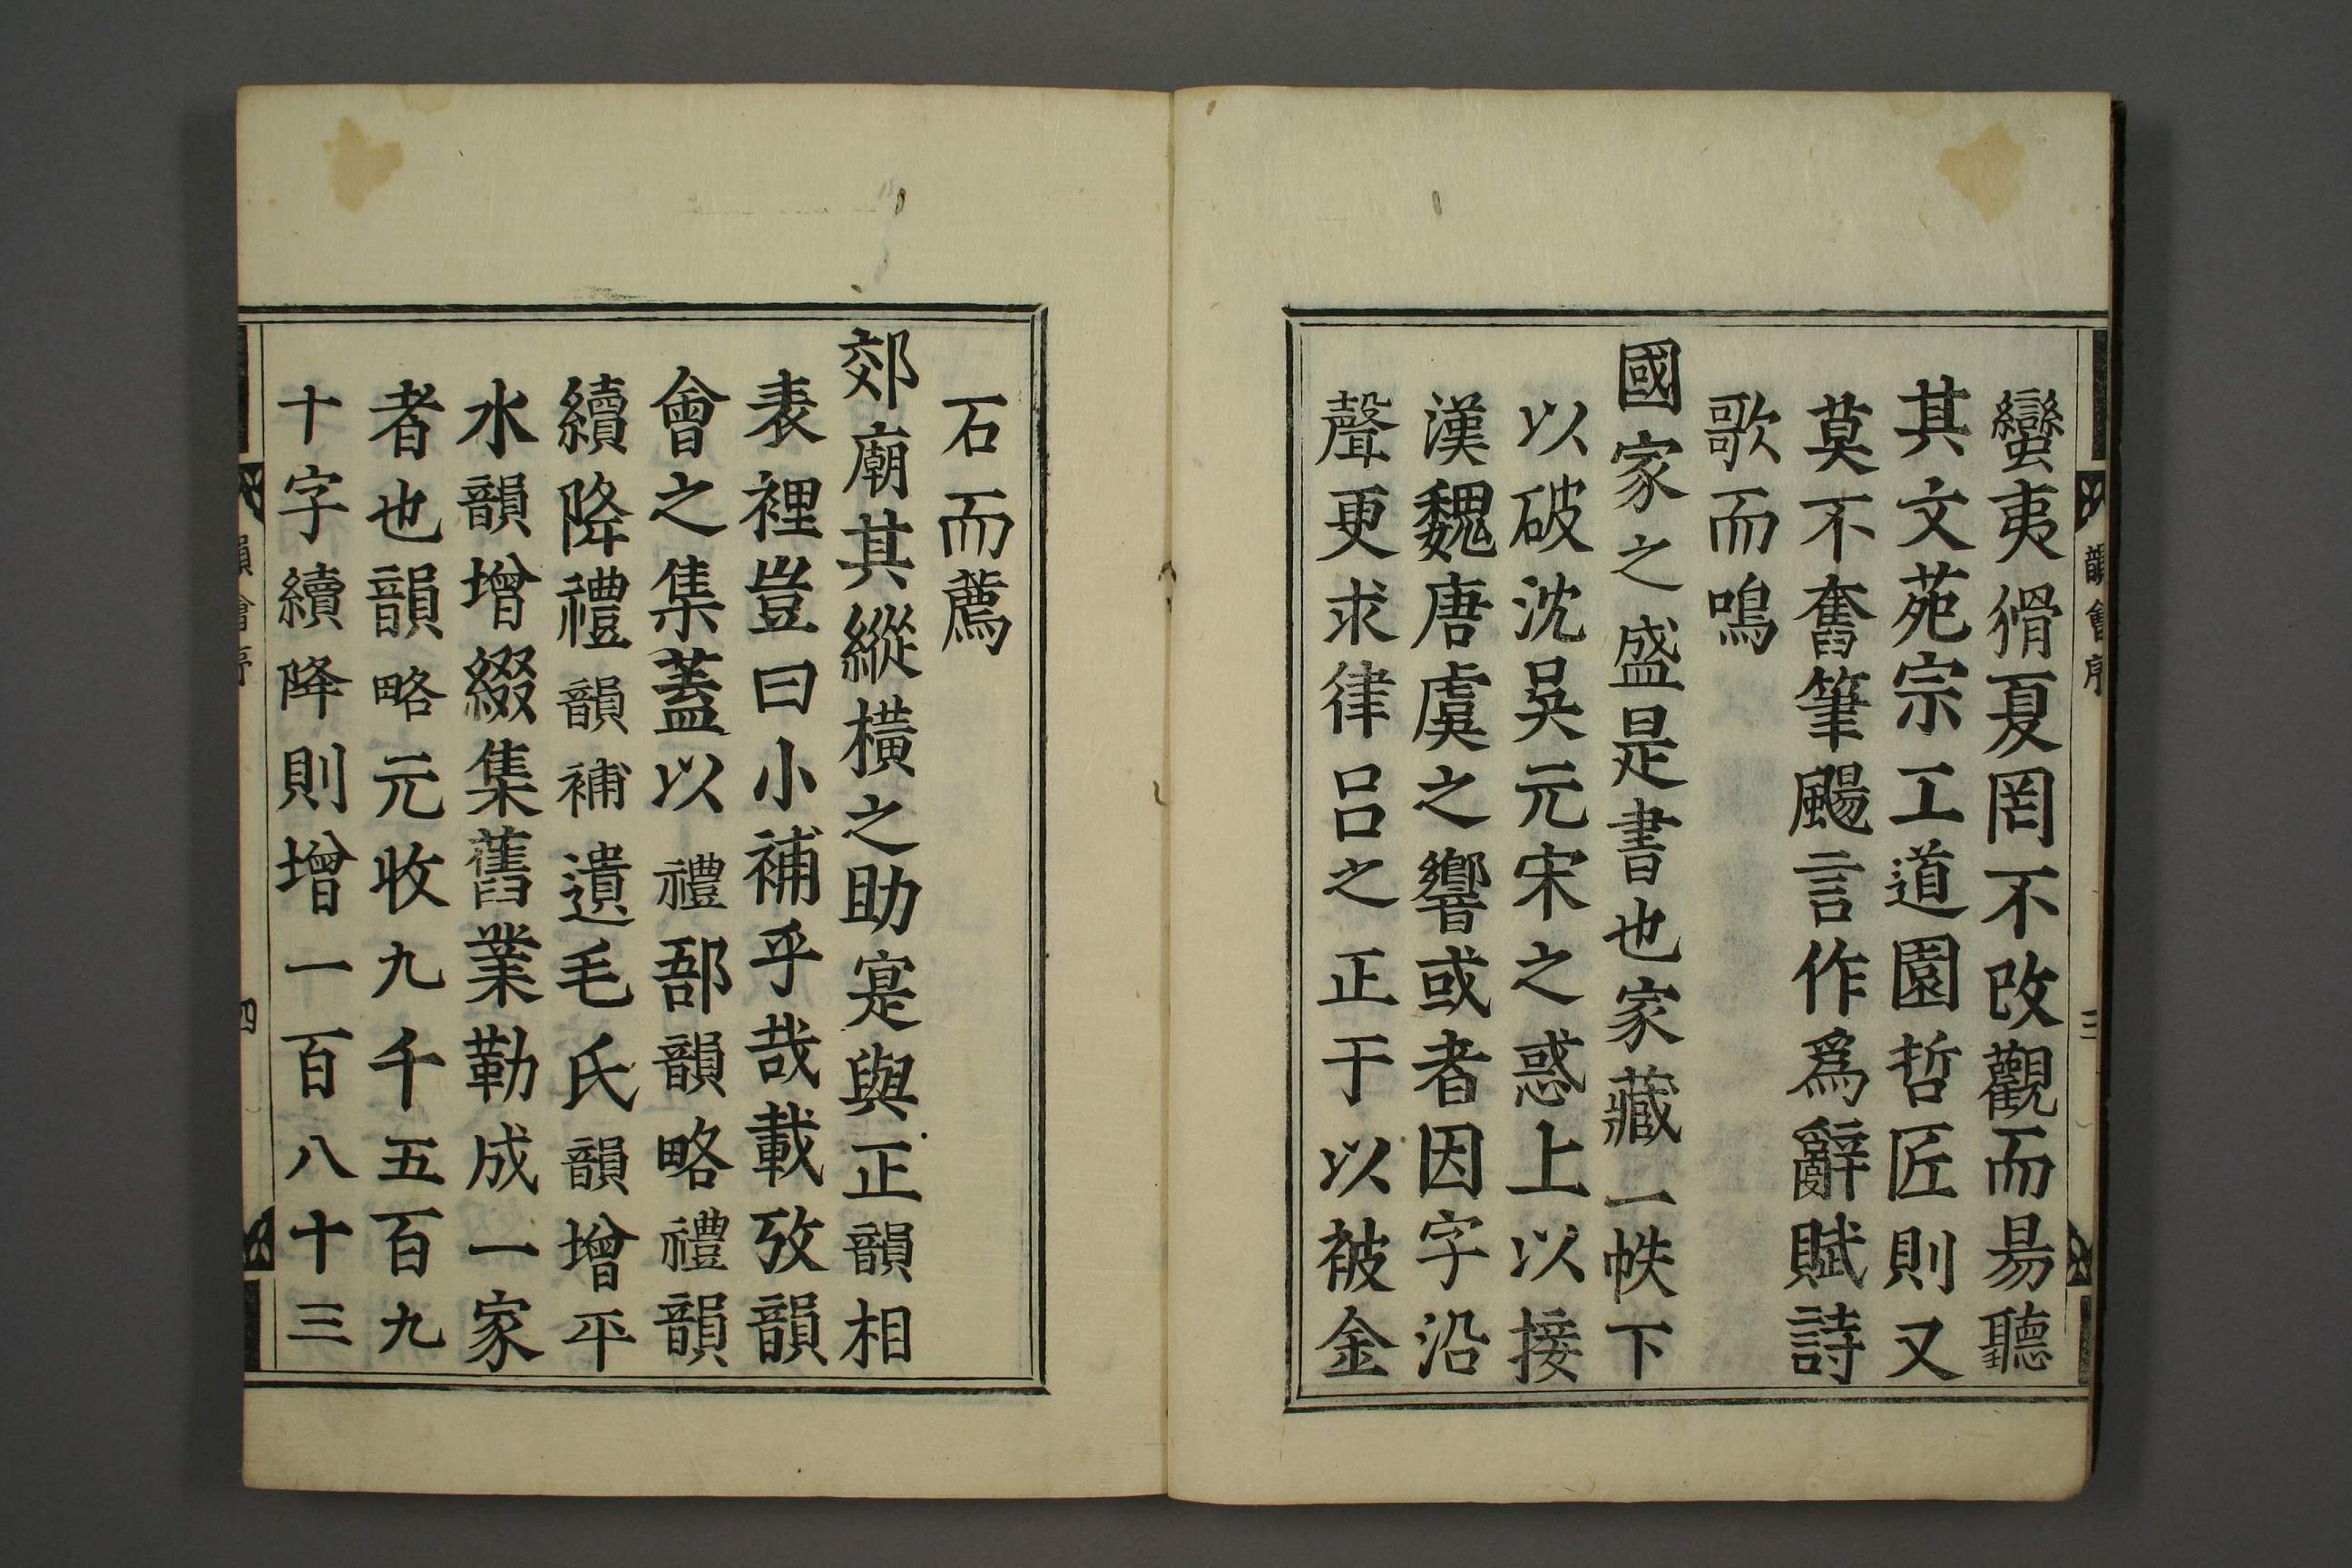 蠻夷猾夏罔不改觀而易聽
其文苑宗工道園哲匠則又
莫不奮筆颺言作爲辭賦詩
歌而鳴
國家之盛是書也家藏一帙下
以破沈吳元宋之惑上以接
漢魏唐虞之響或者因字沿
聲更求律呂之正于以被金
韻會序
三
石而薦
郊廟其縱橫之助寔與正韻相
表裡豈曰小補乎哉載攷韻
會之集蓋以禮部韻略禮韻
續降禮韻補遺毛氏韻增平
水韻增綴集舊業勒成一家
者也韻略元收九千五百九
十字續降則增一百八十三
韻會序
四